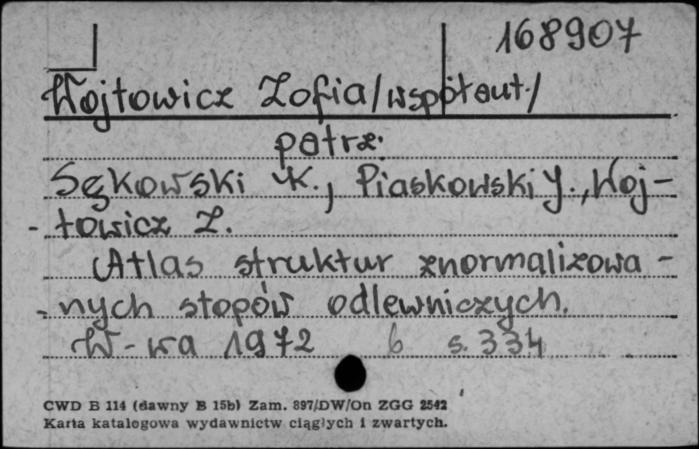 168907
Wojtowicz Zofia /współaut./
patrz.
Sękowski K., Piaskowski J., Woj-
-towicz Z.
Atlas struktur znormalizowa-
-nych stopów odlewniczych.
W-wa 1972 6 s. 334
CWD B 114 (dawny B 15b) Zam. 897/DW/On ZGG 2542
Karta katalogowa wydawnictw ciągłych i zwartych.